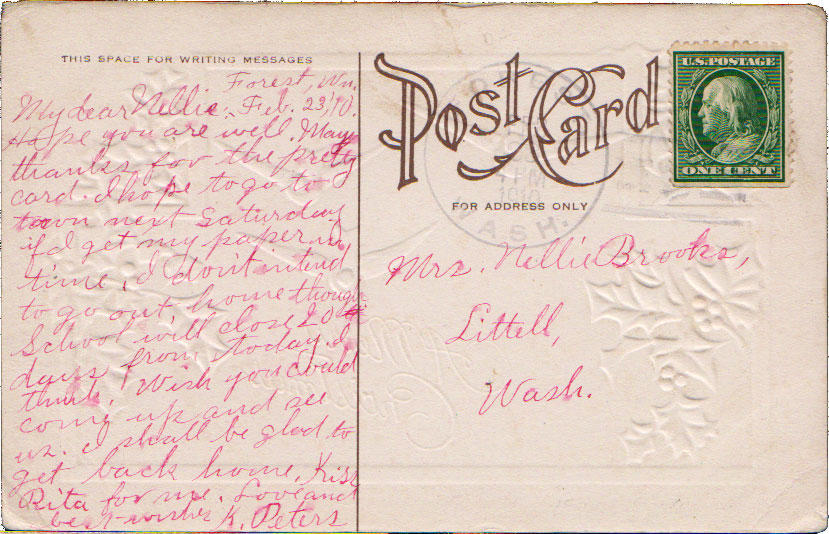 THIS SPACE FOR WRITING MESSAGES
Forest, Wn.
My dear Nellie:, Feb. 23, '10.
Hope you are well. Many
thanks for the pretty
card. I hope to go to
town next Saturday
if I get my paper in
time, I don't intend
to go out home though
School will close 20
days from today I
think. Wish you could
come up and see
us. I shall be glad to
get back home. Kiss
Rita for me. Love and
best-wishes K. Peters
Post Card
FOR ADDRESS ONLY
U.S. POSTAGE
ONE CENT
1910
WASH.
Mrs. Nellie Brooks,
Littell,
Wash.